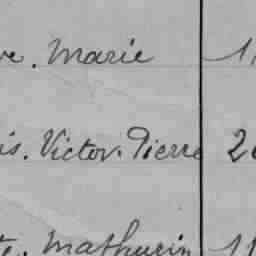 ve. Marie 1
is. Victor. Pierre 2
te. Mathurin 11